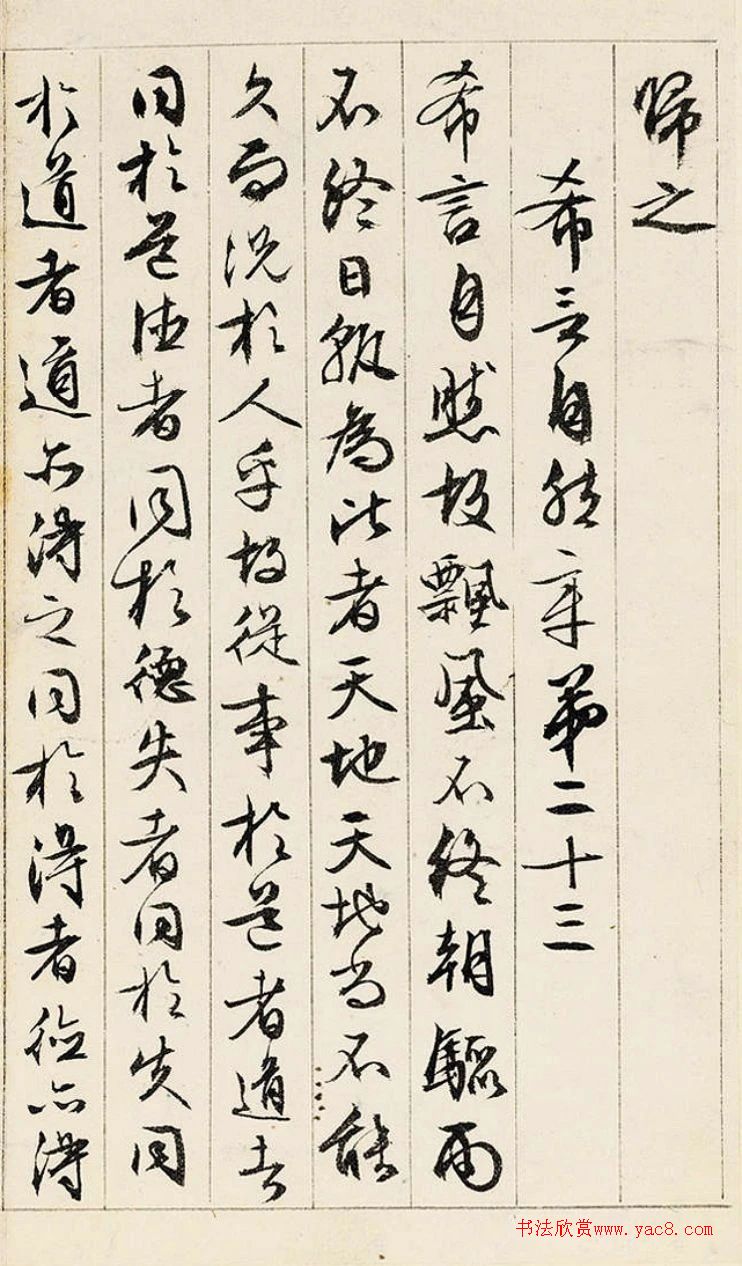 歸之
希言自然章第二十三
希言自然故飄風不終朝驟雨
不終日孰為此者天地天地尚不能
久而況於人乎故從事於道者道者
同於道德者同於德失者同於失同
於道者道亦得之同於得者德亦得
书法欣赏www.yac8.com